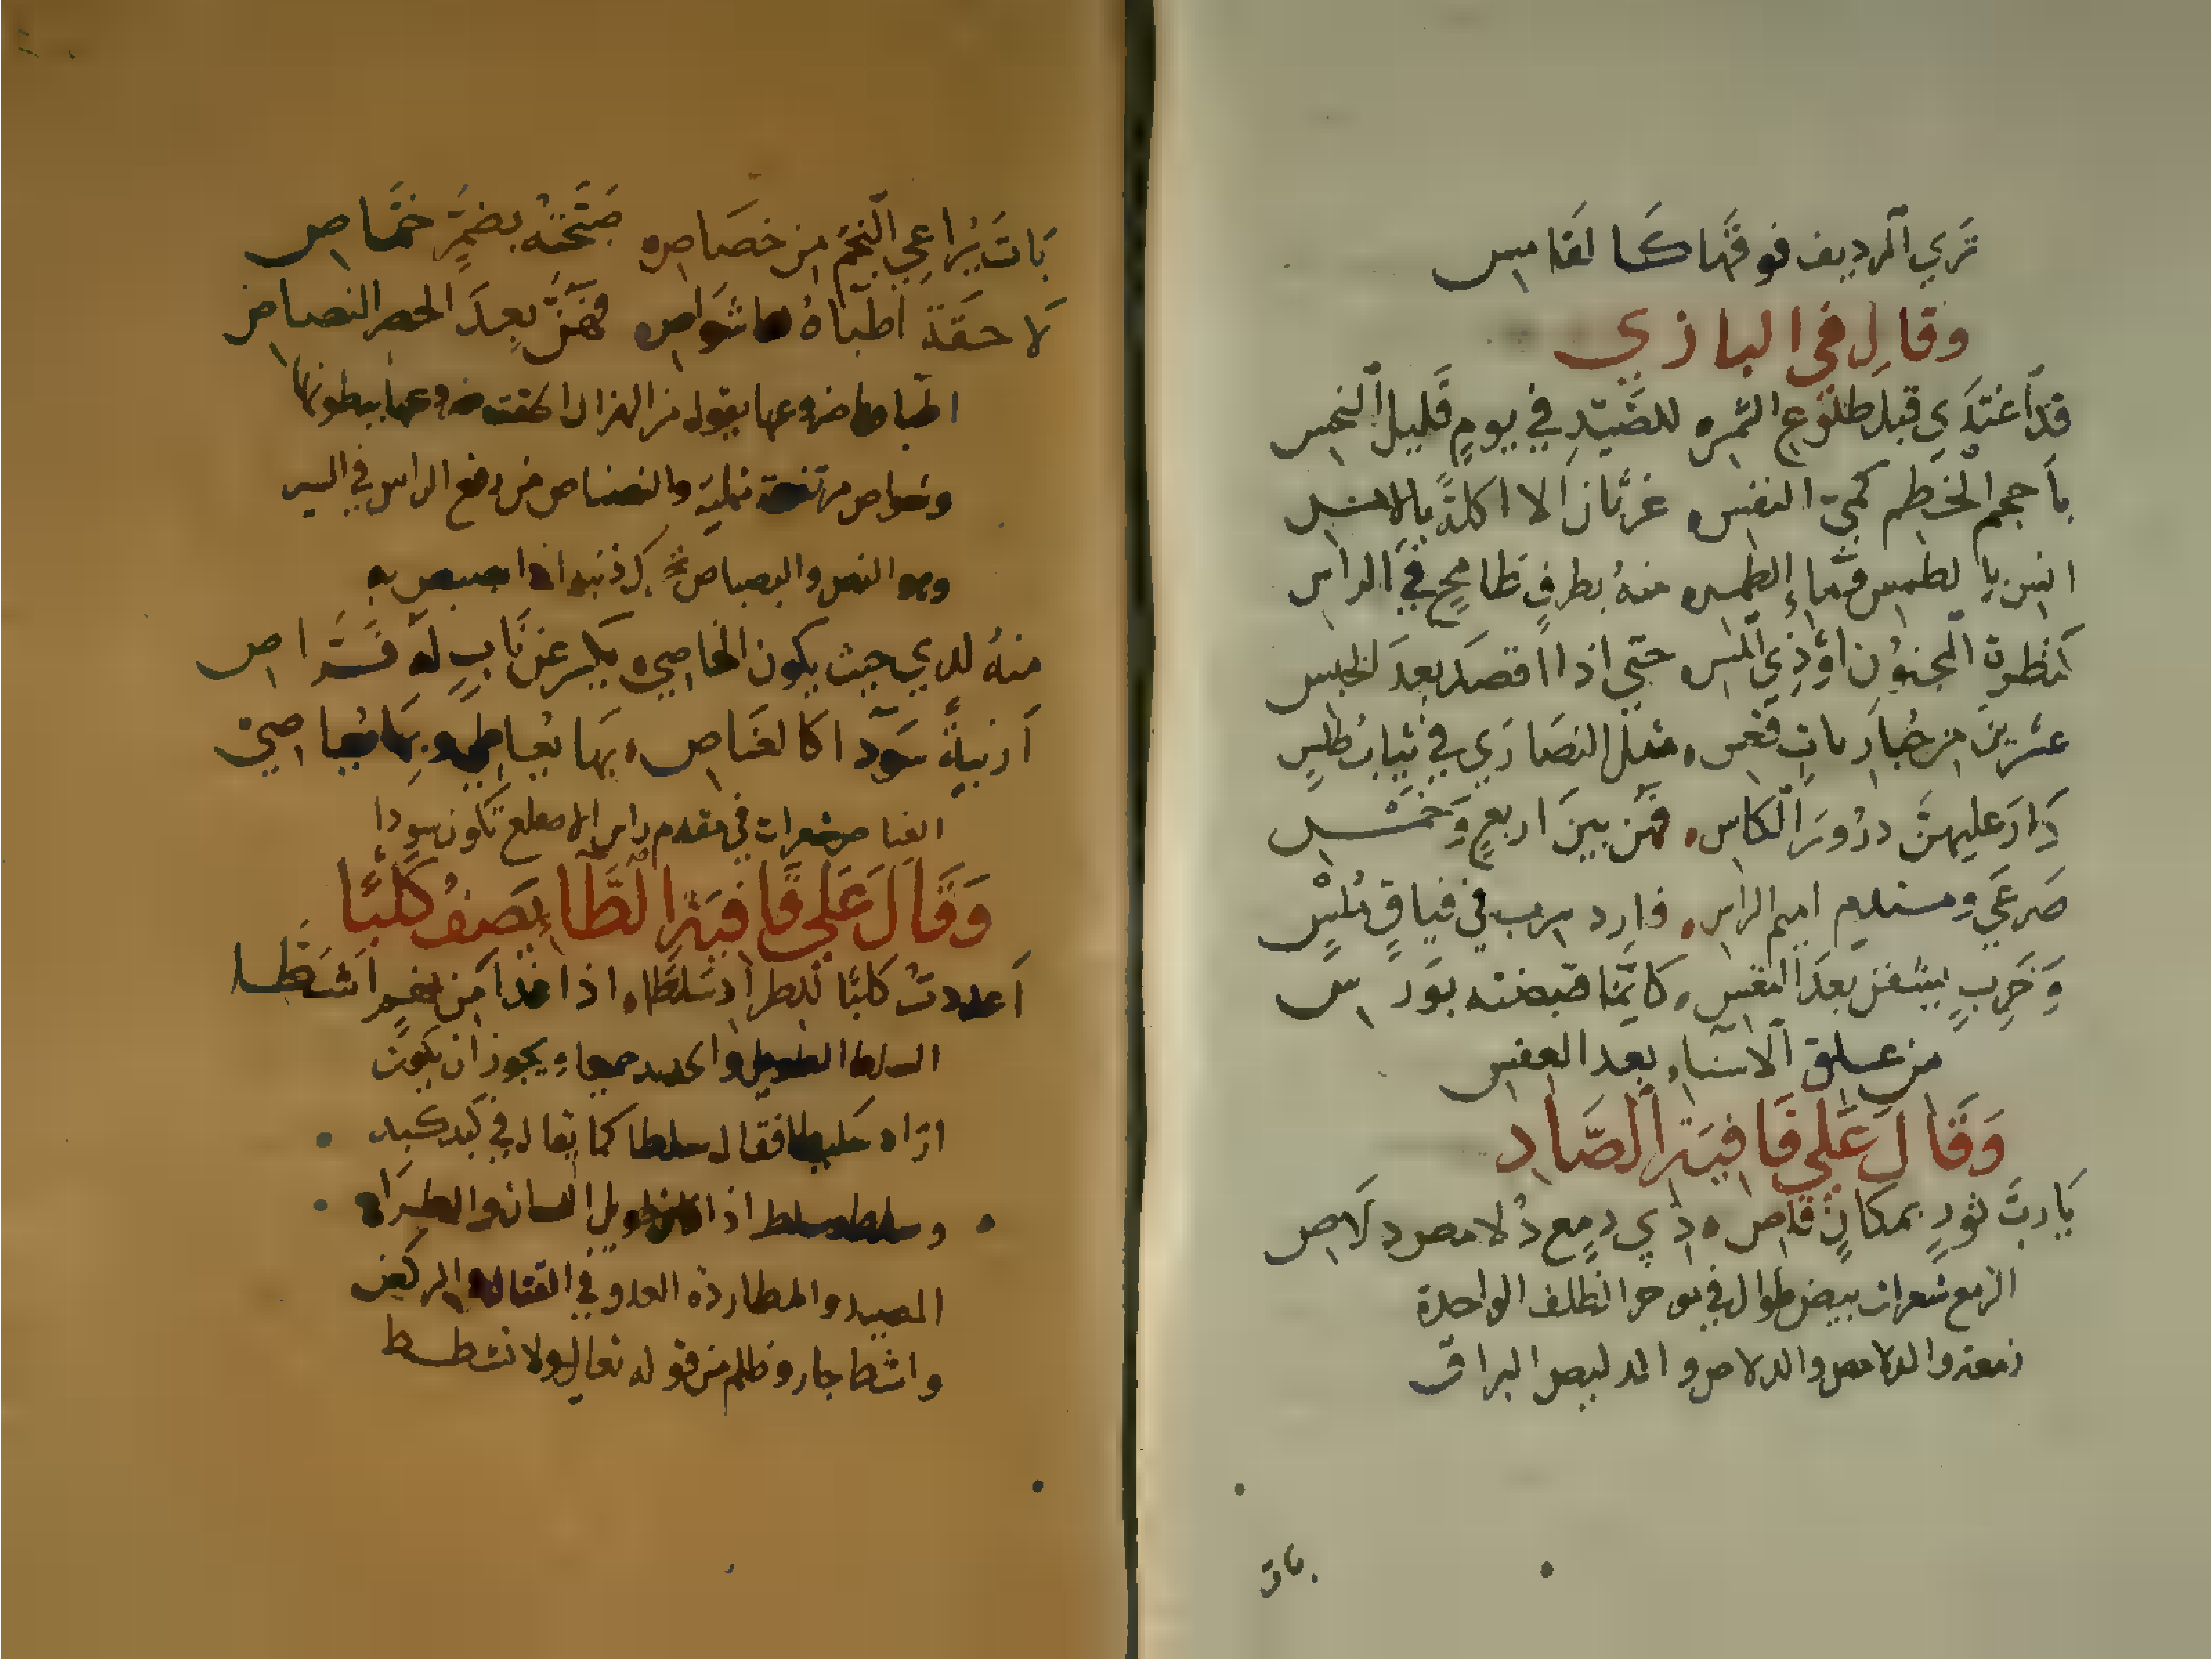 تري الرديف فوقها كالقامس
وقال في البازي
قد أغتدي قبل طلوع الشمس للصيد في يوم قليل النحس
بأحجم الخطم كمي النفس غرثان الا اكلة بالامس
انس بالطمس وماء الطمس منه بطرف طامح في الراس
كنظرة المجنون او ذي المس حتي اذا اقصد بعد الحبس
عشرين من حباريات قعس مثل النصاري في ثياب طلس
دار عليهن دور الكاس فهن بين اربع وخمس
صرعي ومستدم اميم الراس فارد سرب في فيافي ملس
وخرب ينشفن بعد النفس كانما صبغته بورس
من علق الاسناء بعد العفس
وقال علي قافية الصاد
يا رب ثور بمكان قاص ذي زمع دلامص دلاص
الزمع شعرات بيض طوال في موخر الظلف الواحدة
زمعة والدلامص والدلاص والدليص البراق
بات
بات يراعي النجم من خصاص صبحته بضمر خماص
لاحقة اطباؤها شواص فهن بعد الحصر النصاص
اطباوها ضروعها يقول من الهزال لحقت ضروعها ببطونها
وشواص مرتفعة والنصناص من رفع الراس في السير
وهو النص والبصباص ذنبه اذا بصبص به
منه لدي حيث يكون الخاصي يكر عن ناب له فراص
ارنبة سودا كالعناص بها يعاطي وبها يعاصي
العناصي شعرات في مقدم راس الاصلع تكون سودا
وقال علي قافية الطاء يصف كلبا
أعددت كلبا للطراد سلطا اذا غدا من نهم اشتطا
السلط الطويل والحديد جميعا ويجوز ان يكون
اراد سليطا فقال سلطا كما يقال في كبد كبد
وسلط وسلط اذا كان طويل اللسان والطراد
الصيد والمطاردة العدو في القتال والركض
واشتط جار وظلم من قوله تعالي ولا تشطط